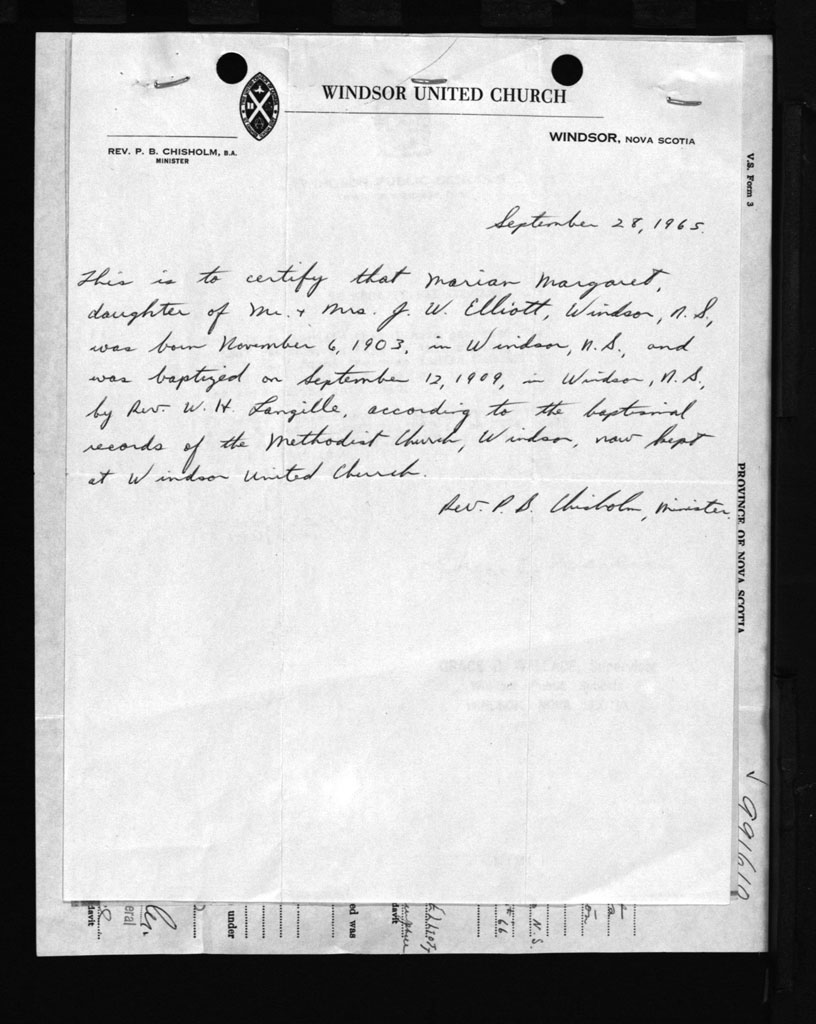 WINDSOR UNITED CHURCH
WINDSOR, NOVA SCOTIA
REV. P. B. CHISHOLM, B.A.
MINISTER
September 28, 1965.
This is to certify that Marian Margaret,
daughter of Mr. + Mrs. J. W. Elliott, Windsor, N.S.,
was born November 6, 1903, in Windsor, N.S., and
was baptized on September 12, 1909, in Windsor, N.S.,
by Rev. W. H. Langille, according to the baptismal
records of the Methodist Church, Windsor, now kept
at Windsor United Church.
Rev. P. B. Chisholm, Minister.
V.S. Form 3
PROVINCE OF NOVA SCOTIA
991610
under
ed was
N.S.
66
eral
davit